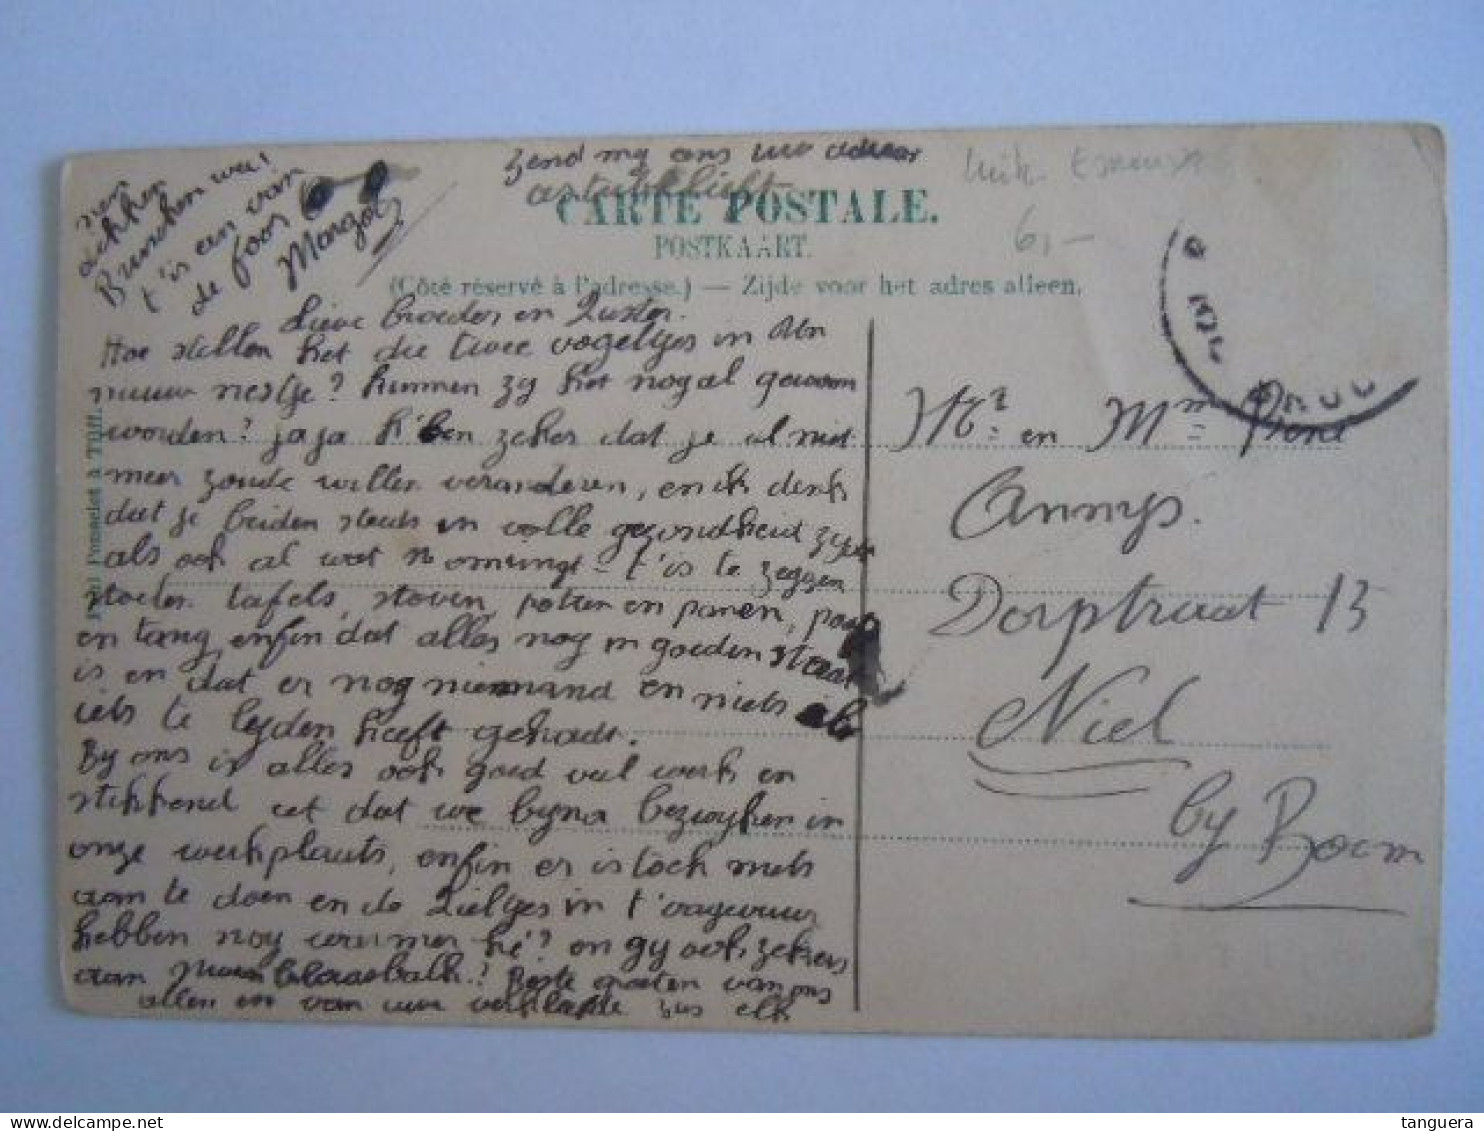 zend my ons uw adres
astublieft
CARTE POSTALE.
POSTKAART.
(Côté réservé à l'adresse.) — Zijde voor het adres alleen.
6,-
een
dikken
Brusschen wei
t'is een van
de foor
Margot
Lieve broeder en Zuster.
Hoe stellen het die twee vogeltjes in Un
nieuw nestje? kunnen zy het nogal gewoon
worden? ja ja k'ben zeker dat je al niet
meer zoude willen veranderen, en ik denk
dat je beiden steeds in volle gezondheid zyt
als ook al wat er omringt - t'is te zeggen
stoelen tafels, stoven, potten en panen, pook
en tang, enfin dat alles nog in goeden staat
is en dat er nog niemand en niets als
iets te leyden heeft gehadt.
By ons is alles ook goed veel werk en
stikkend eet dat we byna bezwyken in
onze werkplaats, enfin er is toch niets
aan te doen en de Zieltjes in t'vagevuur
hebben nog wermer hé? en gy ook zekers
aan uwen blaasbalk? Beste groeten van ons
allen en van uwe verkleefde zus elk
Mr. en Mme. René
Annys.
Dorpstraat 13
Niel
by Boom
tanguera
www.delcampe.net